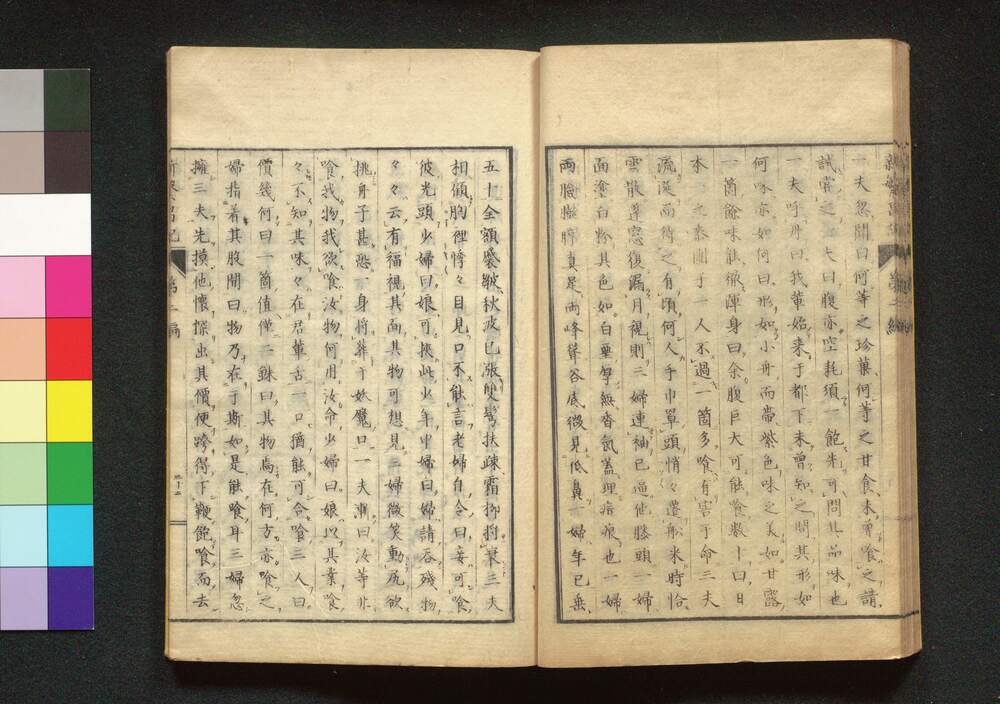 一夫忽聞曰何等之珍菓何等之甘食未曾喰之請
試嘗之一夫曰腹亦空耗須一飽先可問其品味也
一夫呼舟曰我輩始來于都下未曾知之問其形如
何味亦如何曰形如小舟而帶紫色味之美如甘露
一箇餘味能徹渾身曰余腹巨大可能食數十曰日
本一之泰剛于一人不過一箇多喰有害于命三夫
流涎而待之有頃何人手巾單頭悄々遷船來時恰
雲散蓬窓復漏月視則三婦連袖已過他膝頭一婦
面塗白粉其色如白堊鼻無香氣蓋理瘡痕也一婦
兩臉膨脝真是兩峰聳谷底微見低鼻一婦年已垂
五十全額襞皺秋波已漲雙鬢扶疎霜抑將秉三夫
相傾胸裡悸々目見口不能言老婦自令曰妾可喰
彼光頭少婦曰娘可挾此少年中婦曰婦請吞殘物
々々云有福視其面其物可想見三婦微笑動尻欲
挑身子甚恐身將葬于妖魔口一夫漸曰汝等非
喰我物我欲喰汝物何用汝命少婦曰娘以其業喰
々不知其味々在君輩舌一口猶能可令喰三人曰
價幾何曰一箇值僅二銖曰其物焉在何方亦喰之
婦指着其股間曰物乃在于斯如是能喰耳三婦忽
擁三夫先摸他懷探出其價便跨得下鞭飽喰而去